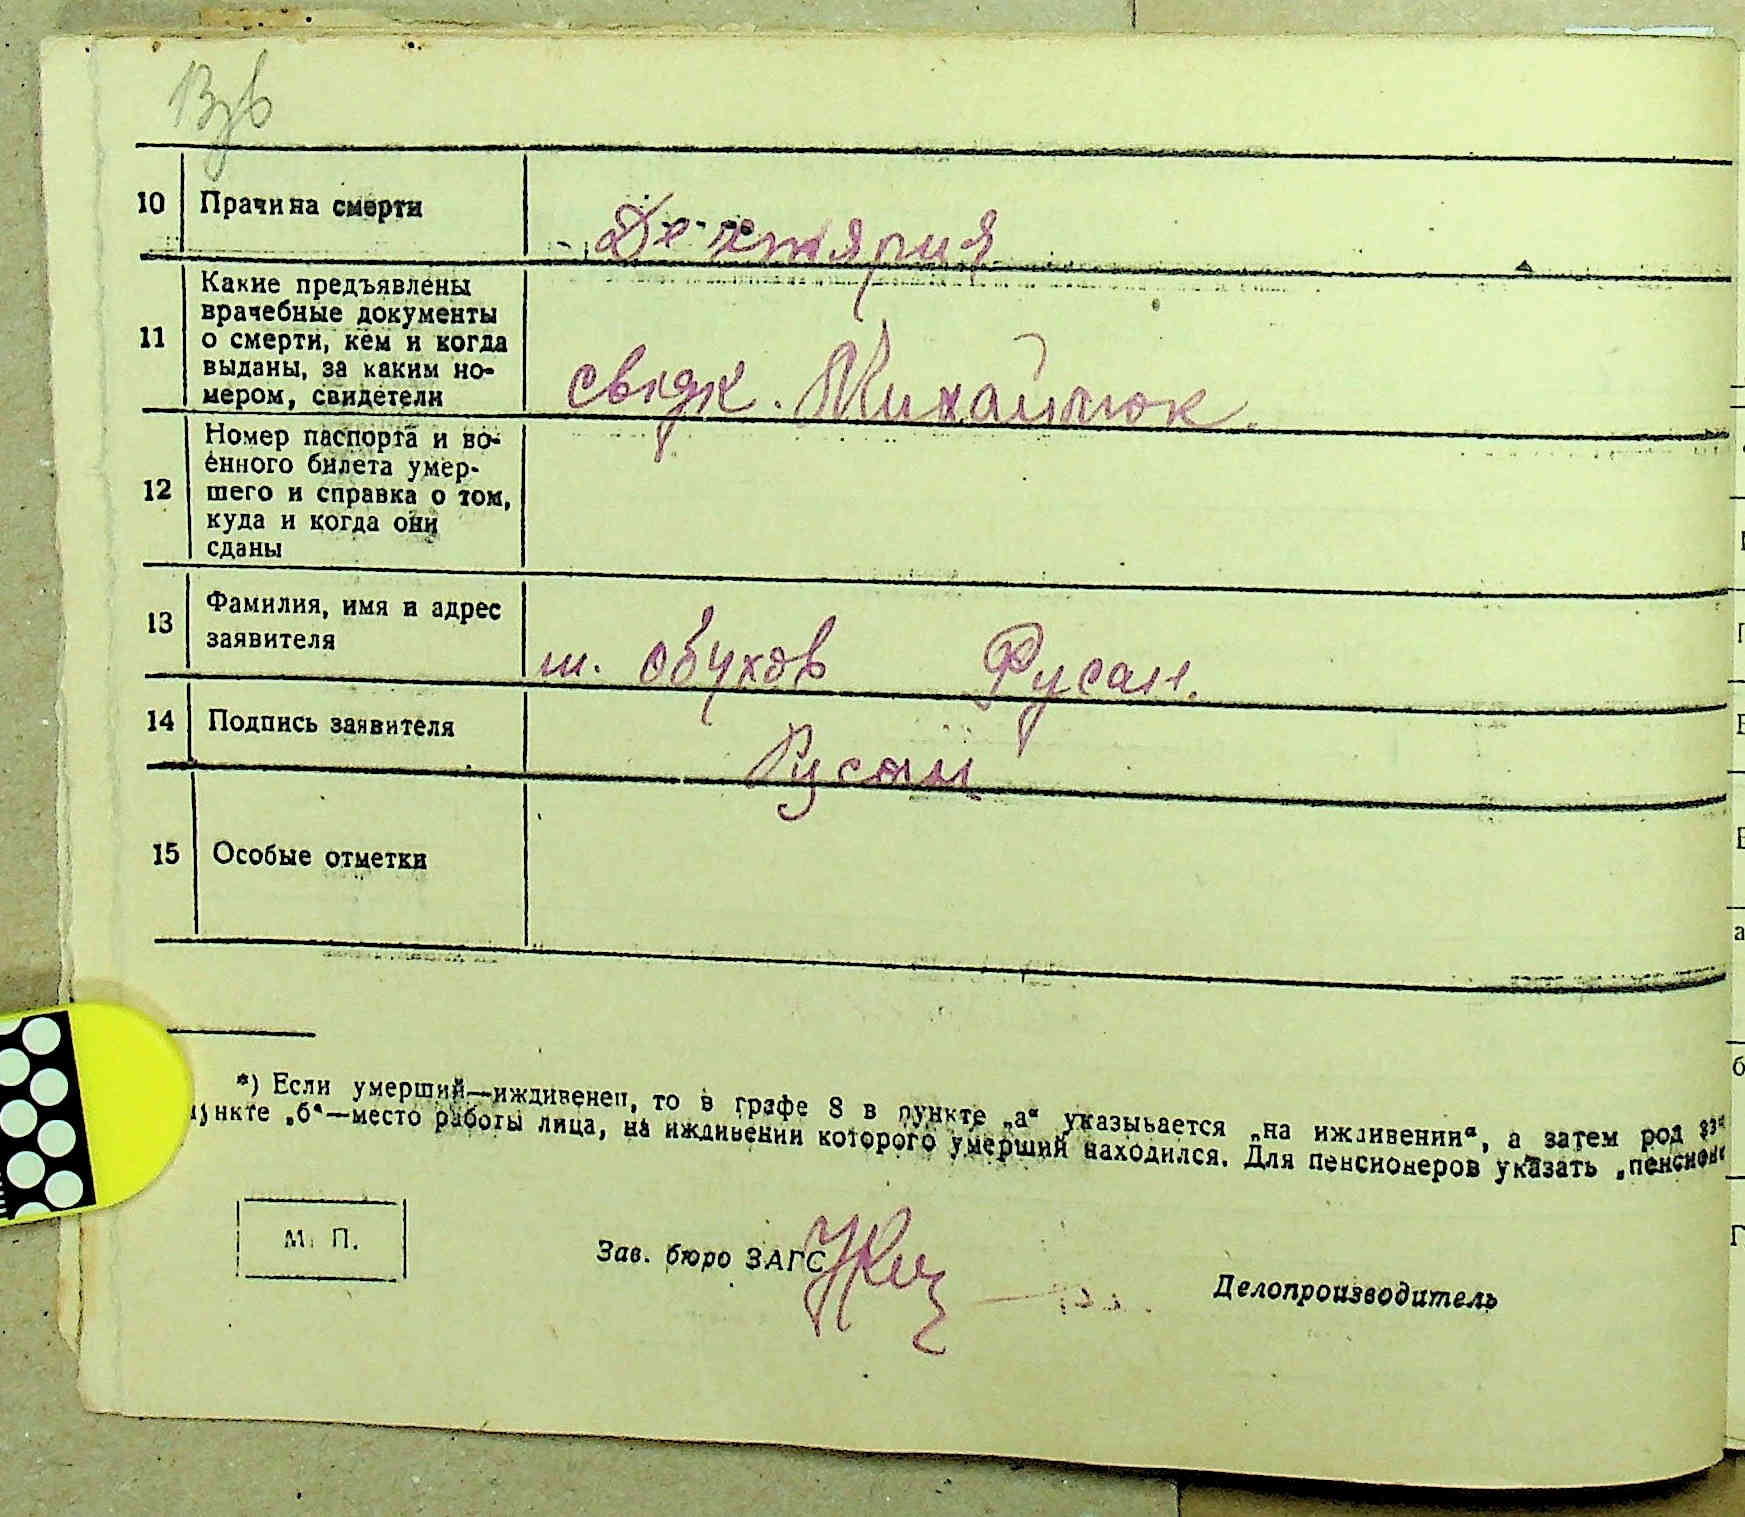 10 Прачина смерти
Дехтярия
11 Какие предъявлены
врачебные документы
о смерти, кем и когда
выданы, за каким но-
мером, свидетели
Михайлюк.
12 Номер паспорта и во-
енного билета умер-
шего и справка о том,
куда и когда они
сданы
13 Фамилия, имя и адрес
заявителя
ш. Обухов Русан.
14 Подпись заявителя
Русан
15 Особые отметки
*) Если умерший—иждивенец, то в графе 8 в пункте „а“ указывается „на иждивении“, а затем род
пункте „б“—место работы лица, на иждивении которого умерший находился. Для пенсионеров указать „пенсион
М. П.
Зав. бюро ЗАГС
Делопроизводитель